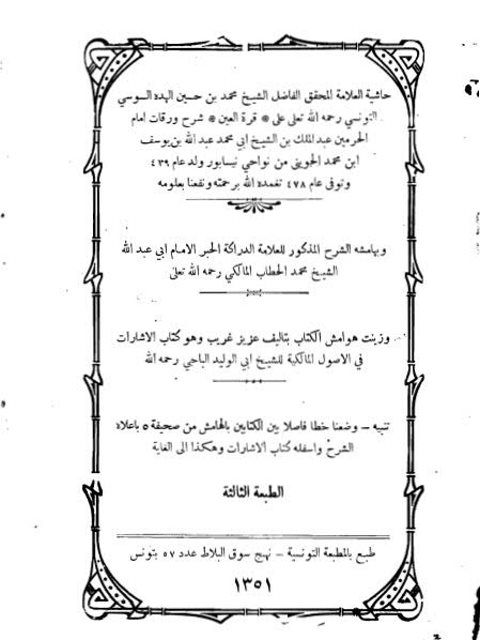 حاشية العلامة المحقق الفاضل الشيخ محمد بن حسين الهده السوسي
التونسي رحمه الله تعلى على * قرة العين * شرح ورقات امام
الحرمين عبد الملك بن الشيخ ابي محمد عبد الله بن يوسف
ابن محمد الجويني من نواحي نيسابور ولد عام ٤٣٩
وتوفى عام ٤٧٨ تغمده الله برحمته ونفعنا بعلومه
وبهامشه الشرح المذكور للعلامة الدراكة الحبر الامام ابي عبد الله
الشيخ محمد الحطاب المالكي رحمه الله تعلى
وزينت هوامش الكتاب بتاليف عزيز غريب وهو كتاب الاشارات
في الاصول المالكية للشيخ ابي الوليد الباجي رحمه الله
تنبيه – وضعنا خطا فاصلا بين الكتابين بالهامش من صحيفة ٥ باعلاه
الشرح واسفله كتاب الاشارات وهكذا الى الغاية
الطبعة الثالثة
طبع بالمطبعة التونسية – نهج سوق البلاط عدد ٥٧ بتونس
١٣٥١